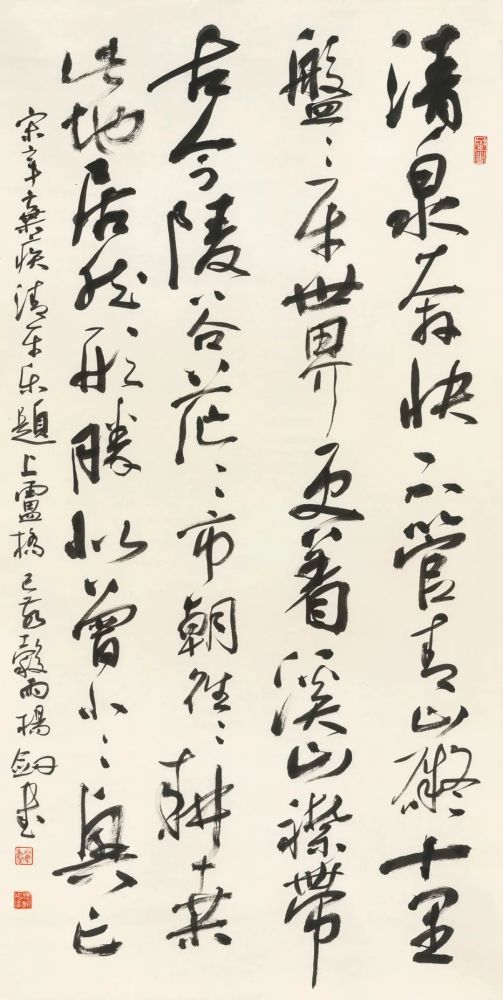 清泉奔快不管青山礙十里
盤〻平世界更着溪山襟帶
古今陵谷茫〻市朝往〻耕桒
此地居然形勝似曾小〻興亡
宋辛棄疾清平乐題上盧橋 己亥穀雨楊劍書